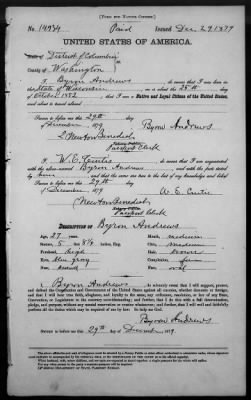 [FORM FOR NATIVE CITIZEN.]
No. 14934 Paid Issued Dec. 29 1879
UNITED STATES OF AMERICA.
State of District of Columbia
County of Washington
I, Byron Andrews, do swear that I was born in
the State of Wisconsin, on or about the 25th day
of October 1852, that I am a Native and Loyal Citizen of the United States,
and about to travel abroad
Sworn to before me this 29th
day of December 1879
Byron Andrews
Newton Benedict
Passport Clerk
I, W. E. Curtis, do swear that I am acquainted
with the above-named Byron Andrews and with the facts stated
by him, and that the same are true to the best of my knowledge and belief.
Sworn to before me this 29th
day of December 1879
W. E. Curtis
Newton Benedict
Passport Clerk
DESCRIPTION OF Byron Andrews
Age: 27 years. Mouth: medium
Stature: 5 feet 8¼ inches, Eng. Chin: medium
Forehead: high Hair: brown
Eyes: blue gray Complexion: fair
Nose: Face: oval
I, Byron Andrews, do solemnly swear that I will support, protect,
and defend the Constitution and Government of the United States against all enemies, whether domestic or foreign;
and that I will bear true faith, allegiance, and loyalty to the same, any ordinance, resolution, or law of any State,
Convention, or Legislature to the contrary notwithstanding; and further, that I do this with a full determination,
pledge, and purpose, without any mental reservation or evasion whatsoever; and further, that I will well and faithfully
perform all the duties which may be required of me by law: So help me God.
Byron Andrews
Sworn to before me this 29th day of December 1879.